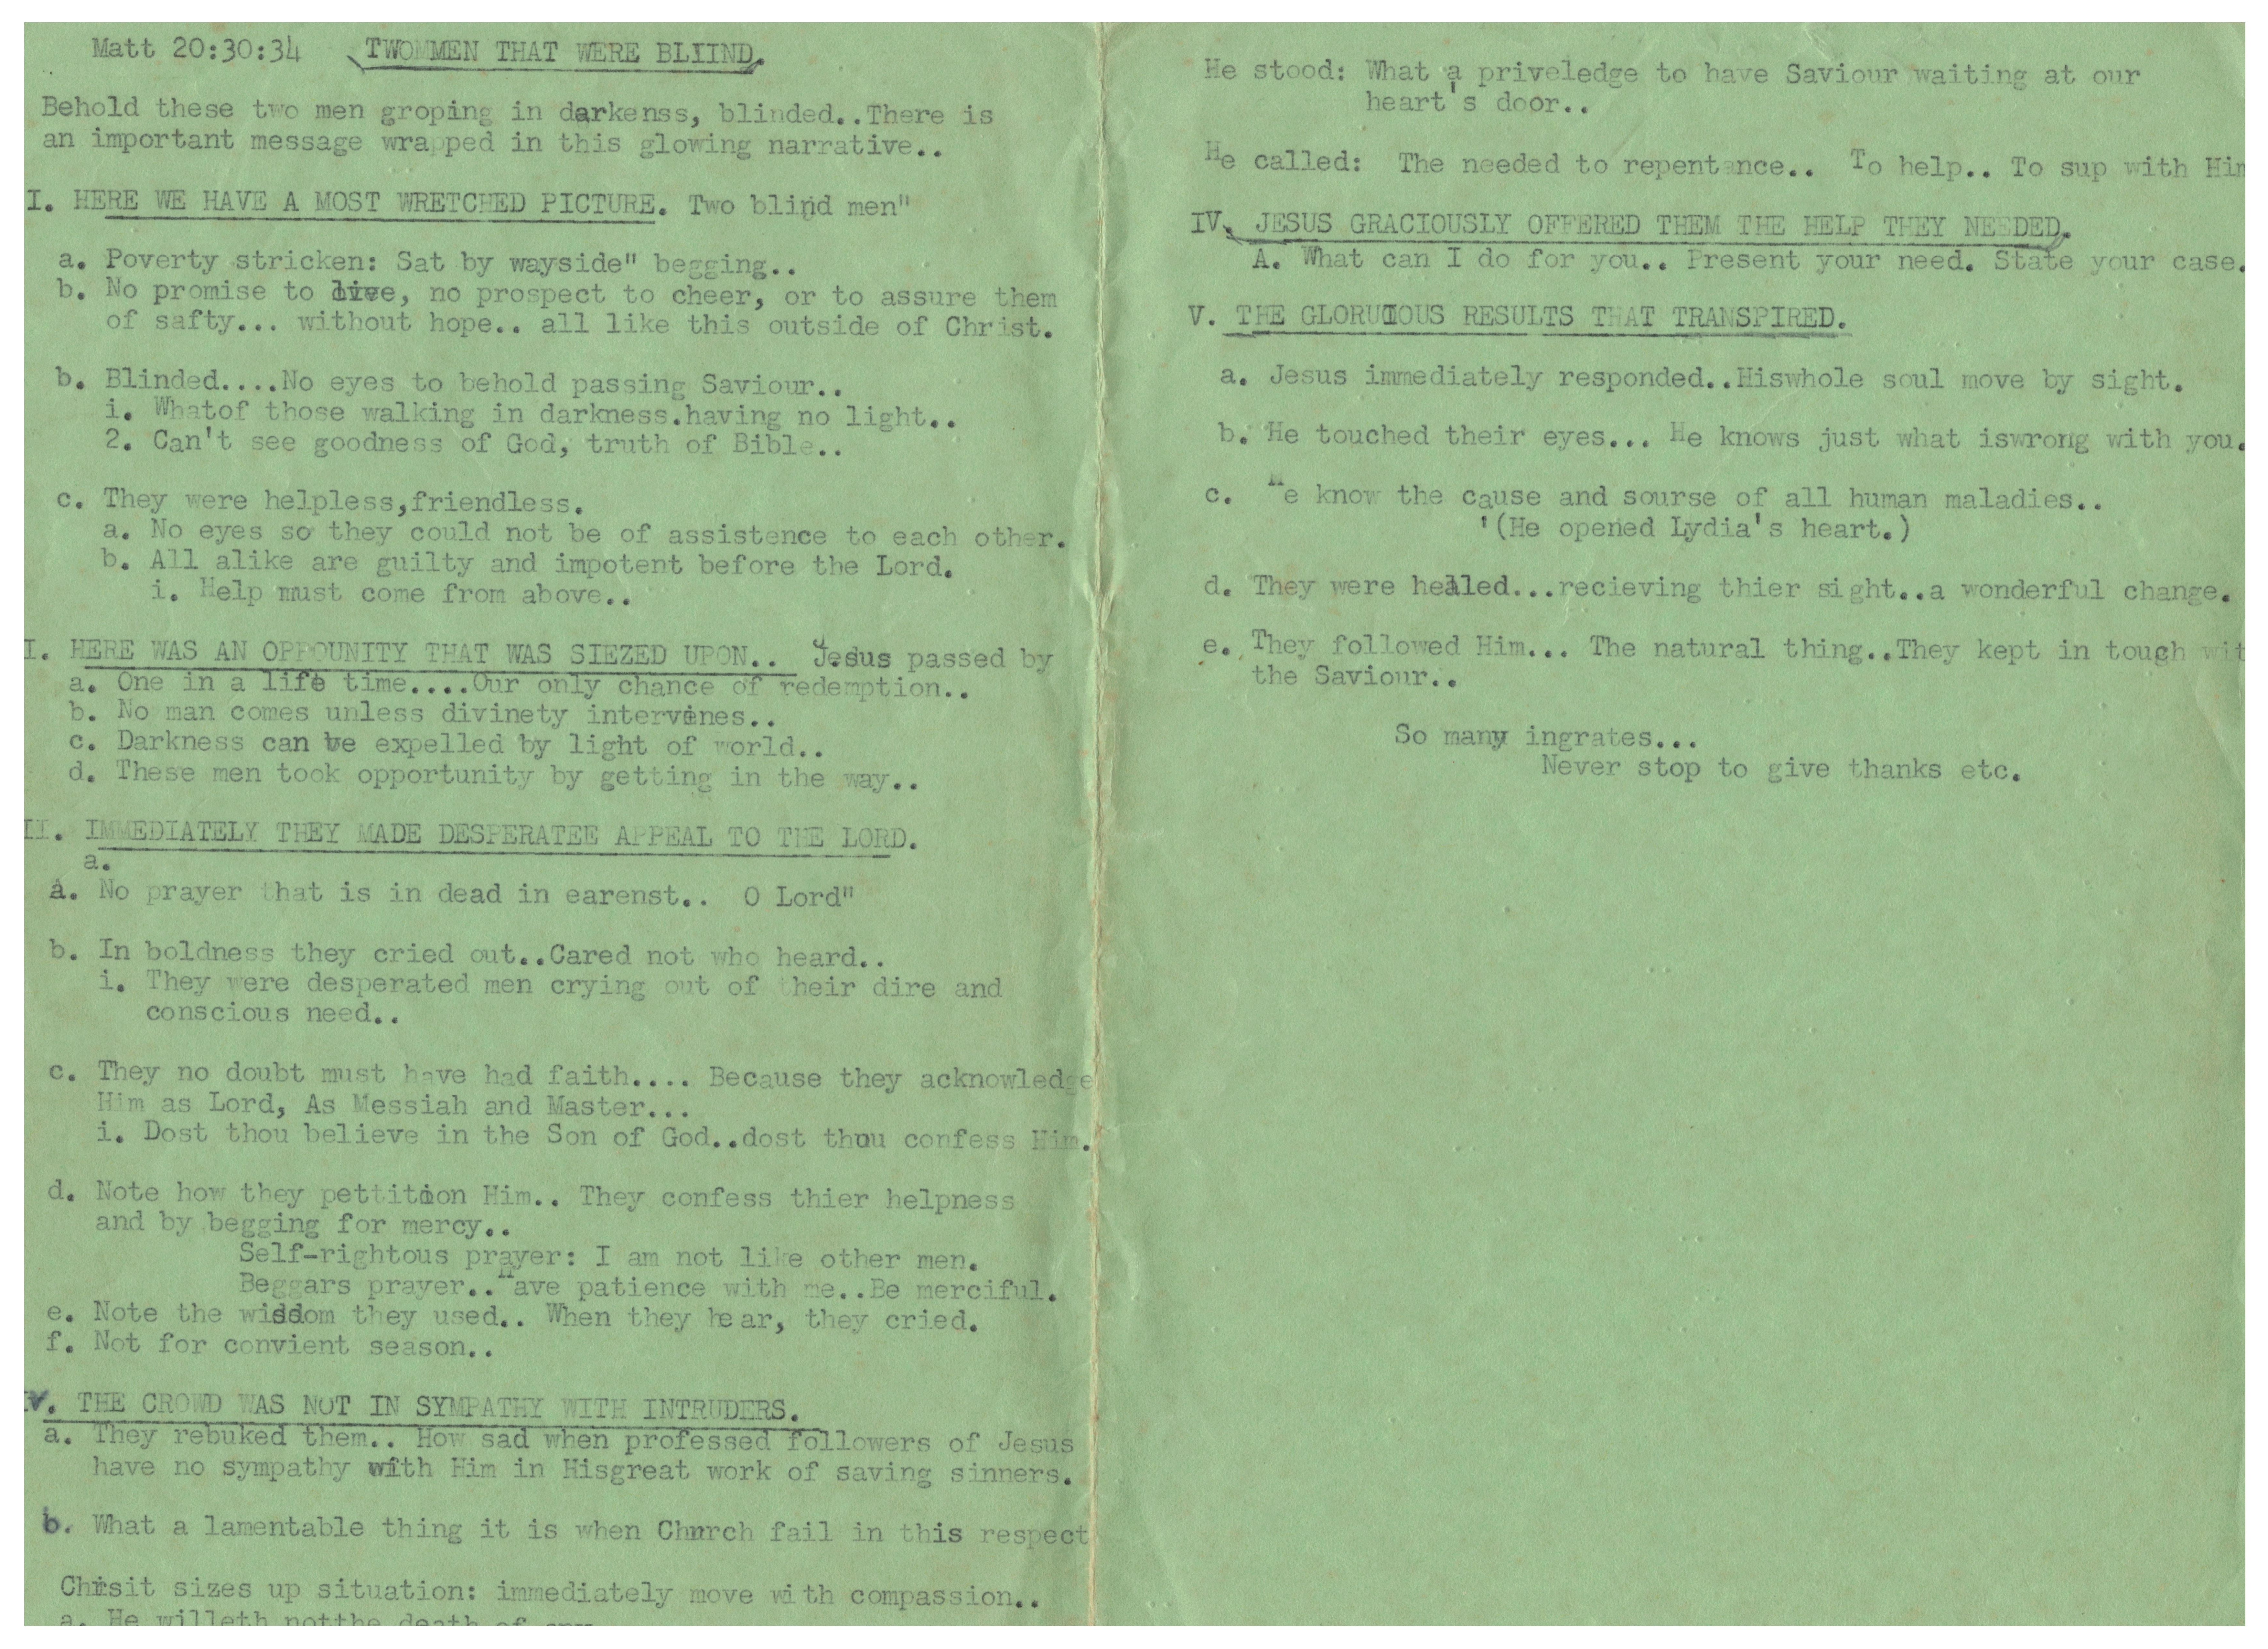 Matt 20:30:34 TWOMMEN THAT WERE BLIIND.
Behold these two men groping in darkenss, blinded..There is
an important message wrapped in this glowing narrative..
I. HERE WE HAVE A MOST WRETCHED PICTURE. Two blind men"
a. Poverty stricken: Sat by wayside" begging..
b. No promise to live, no prospect to cheer, or to assure them
of safty... without hope.. all like this outside of Christ.
b. Blinded....No eyes to behold passing Saviour..
i. Whatof those walking in darkness.having no light..
2. Can't see goodness of God, truth of Bible..
c. They were helpless,friendless.
a. No eyes so they could not be of assistence to each other.
b. All alike are guilty and impotent before the Lord.
i. Help must come from above..
I. HERE WAS AN OPPOUNITY THAT WAS SIEZED UPON.. Jesus passed by
a. One in a life time....Our only chance of redemption..
b. No man comes unless divinety intervines..
c. Darkness can be expelled by light of world..
d. These men took opportunity by getting in the way..
II. IMMEDIATELY THEY MADE DESPERATEE APPEAL TO THE LORD.
a.
a. No prayer that is in dead in earenst.. O Lord"
b. In boldness they cried out..Cared not who heard..
i. They were desperated men crying out of their dire and
conscious need..
c. They no doubt must have had faith.... Because they acknowledge
Him as Lord, As Messiah and Master...
i. Dost thou believe in the Son of God..dost thou confess Him.
d. Note how they pettition Him.. They confess thier helpness
and by begging for mercy..
Self-rightous prayer: I am not like other men.
Beggars prayer..Have patience with me..Be merciful.
e. Note the wisdom they used.. When they hear, they cried.
f. Not for convient season..
IV. THE CROWD WAS NOT IN SYMPATHY WITH INTRUDERS.
a. They rebuked them.. How sad when professed followers of Jesus
have no sympathy with Him in Hisgreat work of saving sinners.
b. What a lamentable thing it is when Church fail in this respect
Chrisit sizes up situation: immediately move with compassion..
a. He willeth notthe death of any
He stood: What a priveledge to have Saviour waiting at our
heart's door..
He called: The needed to repentance.. To help.. To sup with Him
IV. JESUS GRACIOUSLY OFFERED THEM THE HELP THEY NEEDED.
A. What can I do for you.. Present your need. State your case.
V. THE GLORUIOUS RESULTS THAT TRANSPIRED.
a. Jesus immediately responded..Hiswhole soul move by sight.
b. He touched their eyes... He knows just what iswrong with you.
c. He know the cause and sourse of all human maladies..
'(He opened Lydia's heart.)
d. They were healed...recieving thier sight..a wonderful change.
e. They followed Him... The natural thing..They kept in tough wit
the Saviour..
So many ingrates...
Never stop to give thanks etc.